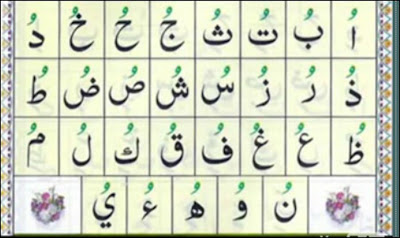 اُ بُ تُ ثُ جُ حُ خُ دُ
ذُ رُ زُ سُ شُ صُ ضُ طُ
ظُ عُ غُ فُ قُ كُ لُ مُ
نُ وُ هُ ءُ يُ